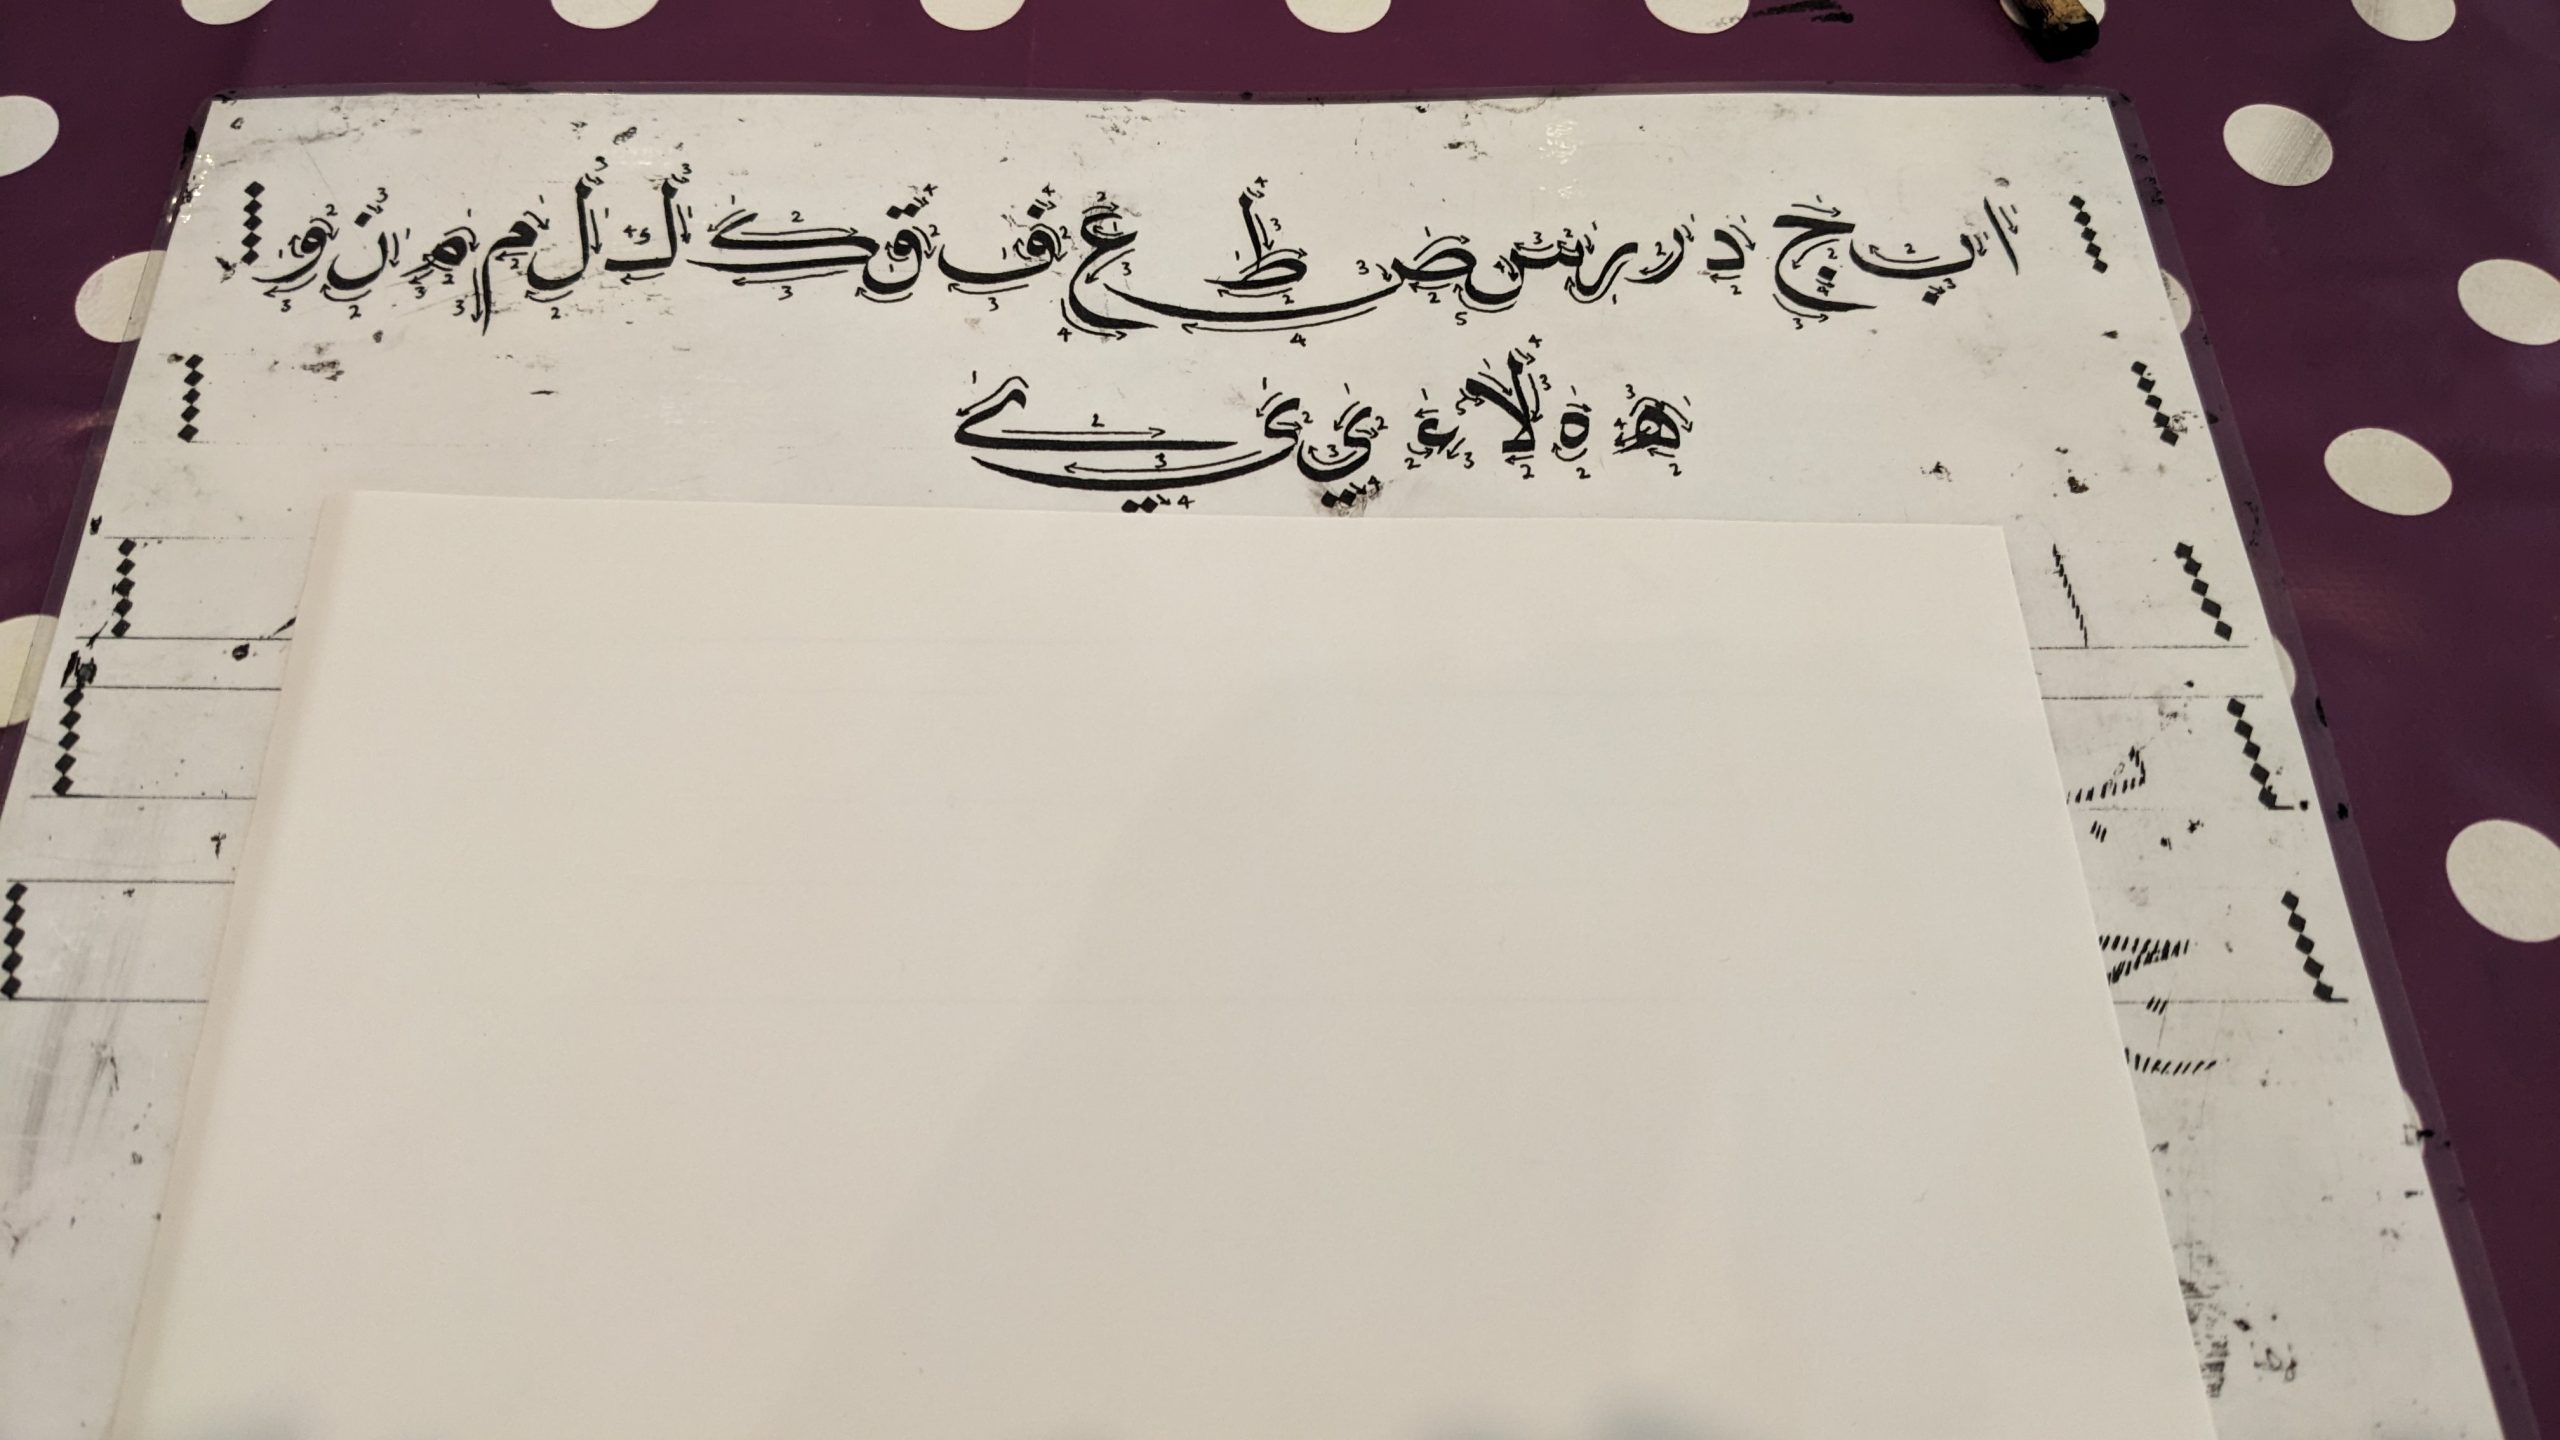 ا ب ج د ر ر س ض ط ع ف ق ك ك ل م م ن و
ه ه لا ء ي ي ے